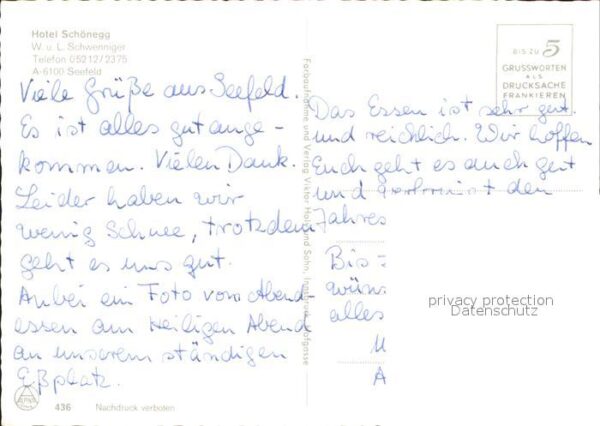 Hotel Schönegg
W. u. L. Schwenniger
Telefon 05212/2375
A-6100 Seefeld
Viele Grüße aus Seefeld.
Es ist alles gut ange-
kommen. Vielen Dank.
Leider haben wir
wenig Schnee, trotzdem
geht es uns gut.
Anbei ein Foto vom Abend-
essen am Heiligen Abend
an unserem ständigen
Eßplatz.
436 Nachdruck verboten
Farbaufnahme und Verlag Viktor und Sohn, Innsbruck, Hofgasse
BIS ZU 5
GRUSSWORTEN
ALS
DRUCKSACHE
FRANKIEREN
Das Essen ist sehr gut
und reichlich. Wir hoffen
Euch geht es auch gut
und den
Jahres
Bis
wün
alles
U
A
privacy protection
Datenschutz